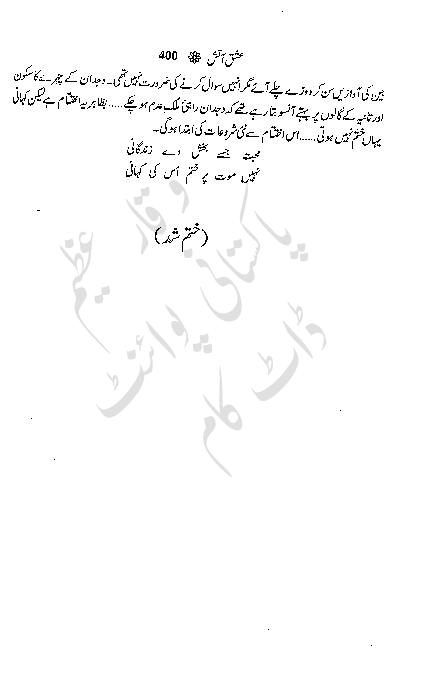 عشق آتش ❁ 400
بین کی آوازیں سن کر وہ دوڑے چلے آئے مگر انہیں سوال کرنے کی ضرورت نہیں تھی۔ وجدان کے چہرے کا سکون
اور تانیہ کے گالوں پر بہتے آنسو بتا رہے تھے کہ وجدان راہیٔ ملک عدم ہو چکے...... بظاہر یہ اختتام ہے لیکن کہانی
یہاں ختم نہیں ہوتی...... اس اختتام سے نئی شروعات کی ابتدا ہو گی۔
محبت جسے بخش دے زندگانی
نہیں موت پر ختم اُس کی کہانی
(ختم شد)
وقار عظیم
پاکستانی پوائنٹ
ڈاٹ کام